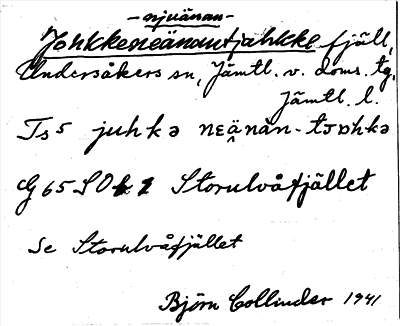 -njuänan-
Johkkeneänantjahkke fjäll,
Undersåkers sn, Jämtl. v. doms. tg,
Jämtl. l.
Ts 5 juhkə nɛänàn-tjɒhkə
G 65 SO 1 Storulvåfjället
Se Storulvåfjället
Björn Collinder 1941